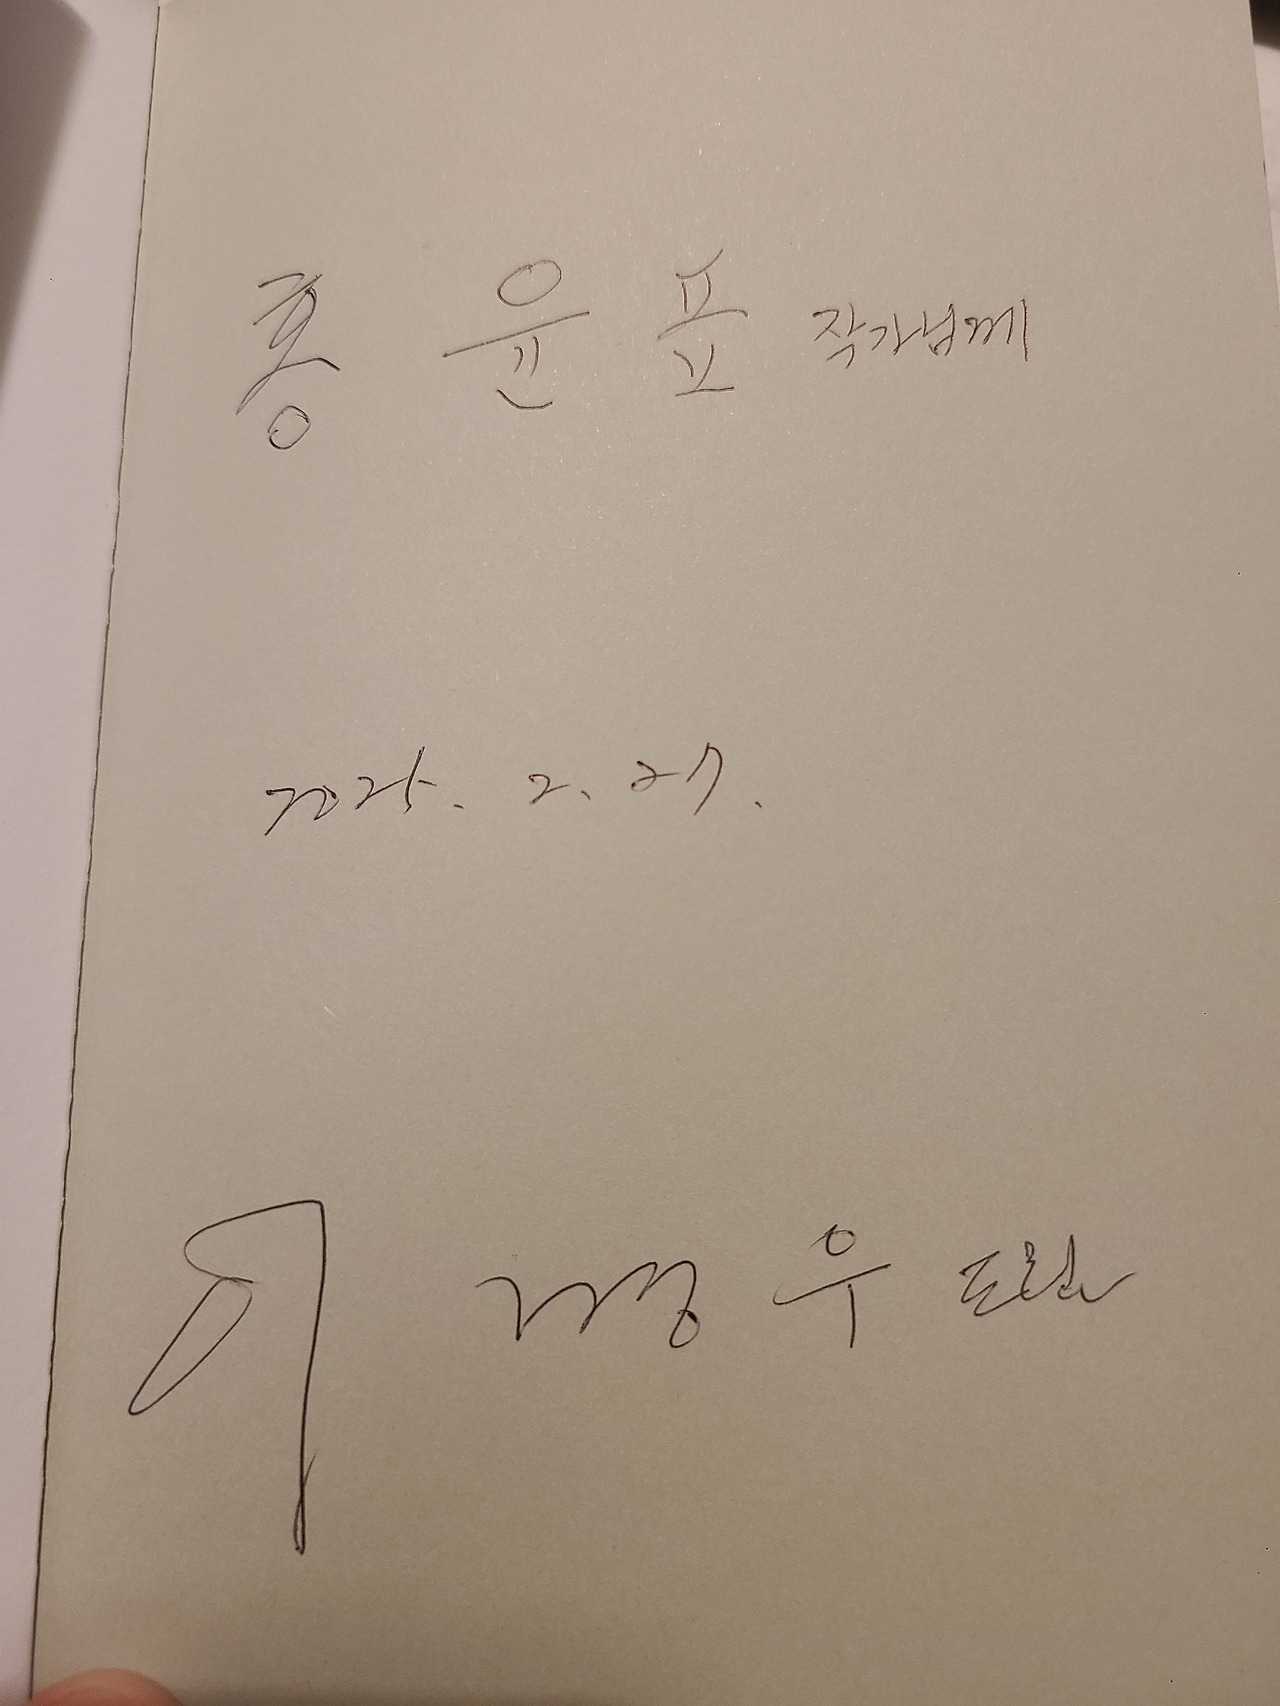 홍 윤 표 작가님께
2025. 2. 27.
우 드림